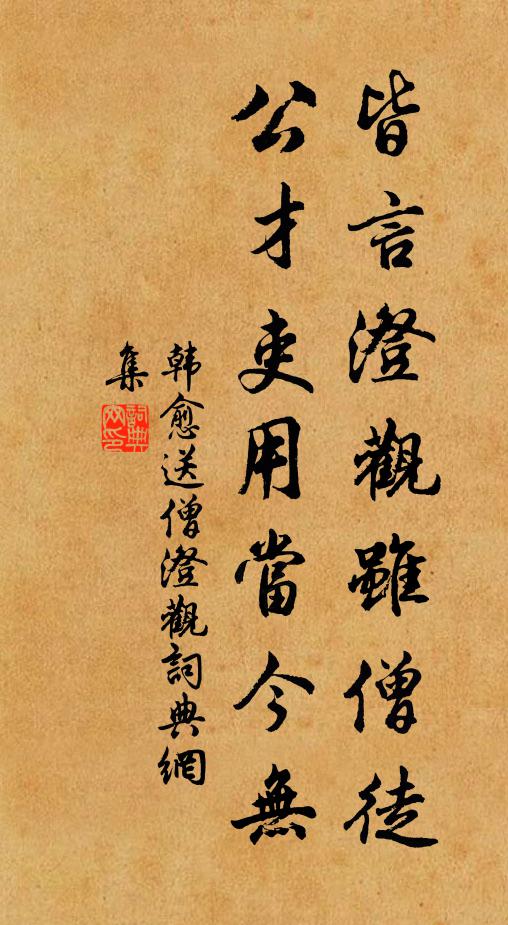 皆言澄觀雖僧徒
公才吏用當今無
韩愈送僧澄觀詞典網
集
詞典
網印